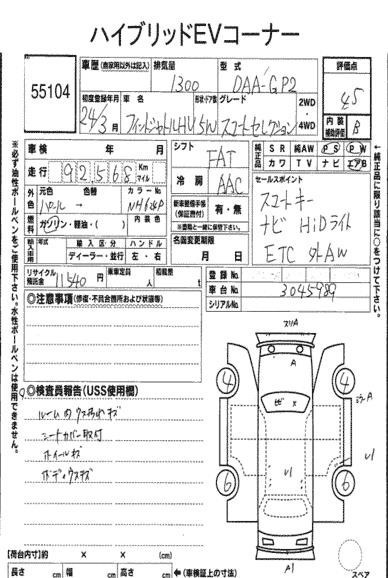 ハイブリッドEVコーナー
55104
車歴 (自家用以外は記入) 排気量 型式 評価点
1300 DAA-GP2 4.5
初度登録年月 車名 形状・ドア数 グレード 2WD 4WD 内装補助評価 B
24年/3月 フィットシャトルHV 5W スマートセレクション
車検 年 月
走行 92568 Km マイル
シフト FAT
冷房 AAC
純正品 SR 純AW PS PW
カワ TV ナビ エアB
外色 元色 色替 カラーNo.
パール → NH624P
燃料 ガソリン・軽油・( ) 内装色
新車整備手帳(保証書付) 有・無
※車両と一緒に保管下さい。
セールスポイント
スマートキー
ナビ HiDライト
ETC 外AW
輸入車 年式 輸入区分 ハンドル
ディーラー・並行 左・右
名義変更期限
月 日
リサイクル預託金 11540円 車車定員 人 積載量 t
登録No.
車台No. 3045989
シリアルNo.
◎注意事項 (修復・不具合箇所および状態等)
◎検査員報告(USS使用欄)
シートカバー取付
ホイールキズ
※必ず油性ボールペンをご使用下さい。水性ボールペンは使用できません。
←純正品に限り該当に○をつけて下さい。
スリA
A
ビ
×
4
4
ミラーA
U1
U1
6
6
A1
スペア
【荷台内寸】 × × (cm)
長さ cm 幅 cm 高さ cm ←(車検証上の寸法)